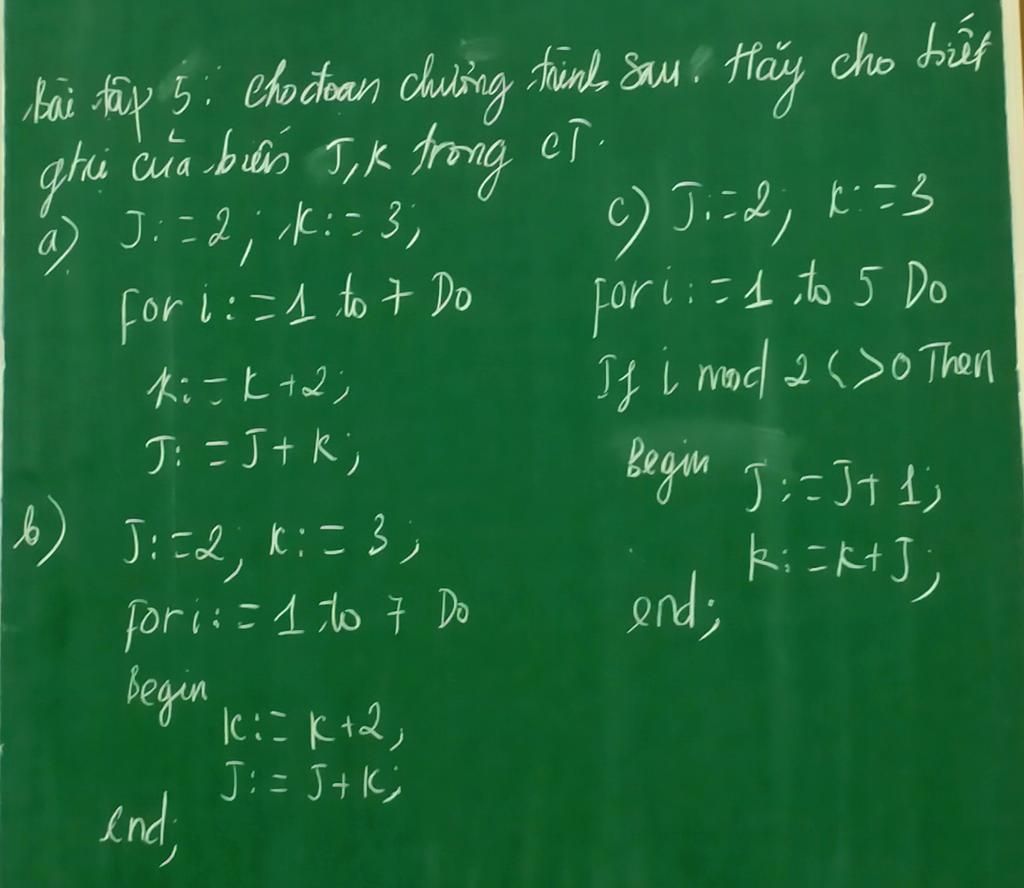 Bài tập 5: Cho đoạn chương trình sau. Hãy cho biết
gtrị của biến J, K trong CT.
a) J:=2; K:=3;
for i:=1 to 7 Do
K:=K+2;
J:=J+K;
b) J:=2; K:=3;
for i:=1 to 7 Do
Begin
K:=K+2;
J:=J+K;
end;
c) J:=2; K:=3
for i:=1 to 5 Do
If i mod 2 <>0 Then
Begin J:=J+1;
K:=K+J;
end;